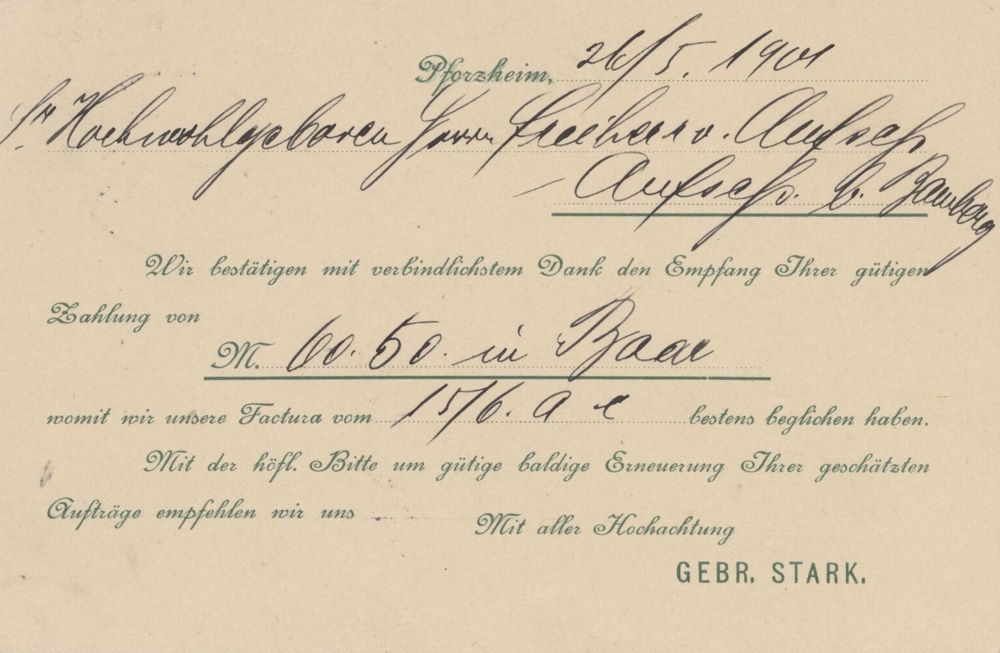 Pforzheim, 26/5. 1901
Sr. Hochwohlgeboren Herrn Freiherr v. Aufseß
Aufseß. b. Bamberg
Wir bestätigen mit verbindlichstem Dank den Empfang Ihrer gütigen
Zahlung von
M. 60. 50. in Baar
womit wir unsere Factura vom 15/6. a c bestens beglichen haben.
Mit der höfl. Bitte um gütige baldige Erneuerung Ihrer geschätzten
Aufträge empfehlen wir uns
Mit aller Hochachtung
GEBR. STARK.